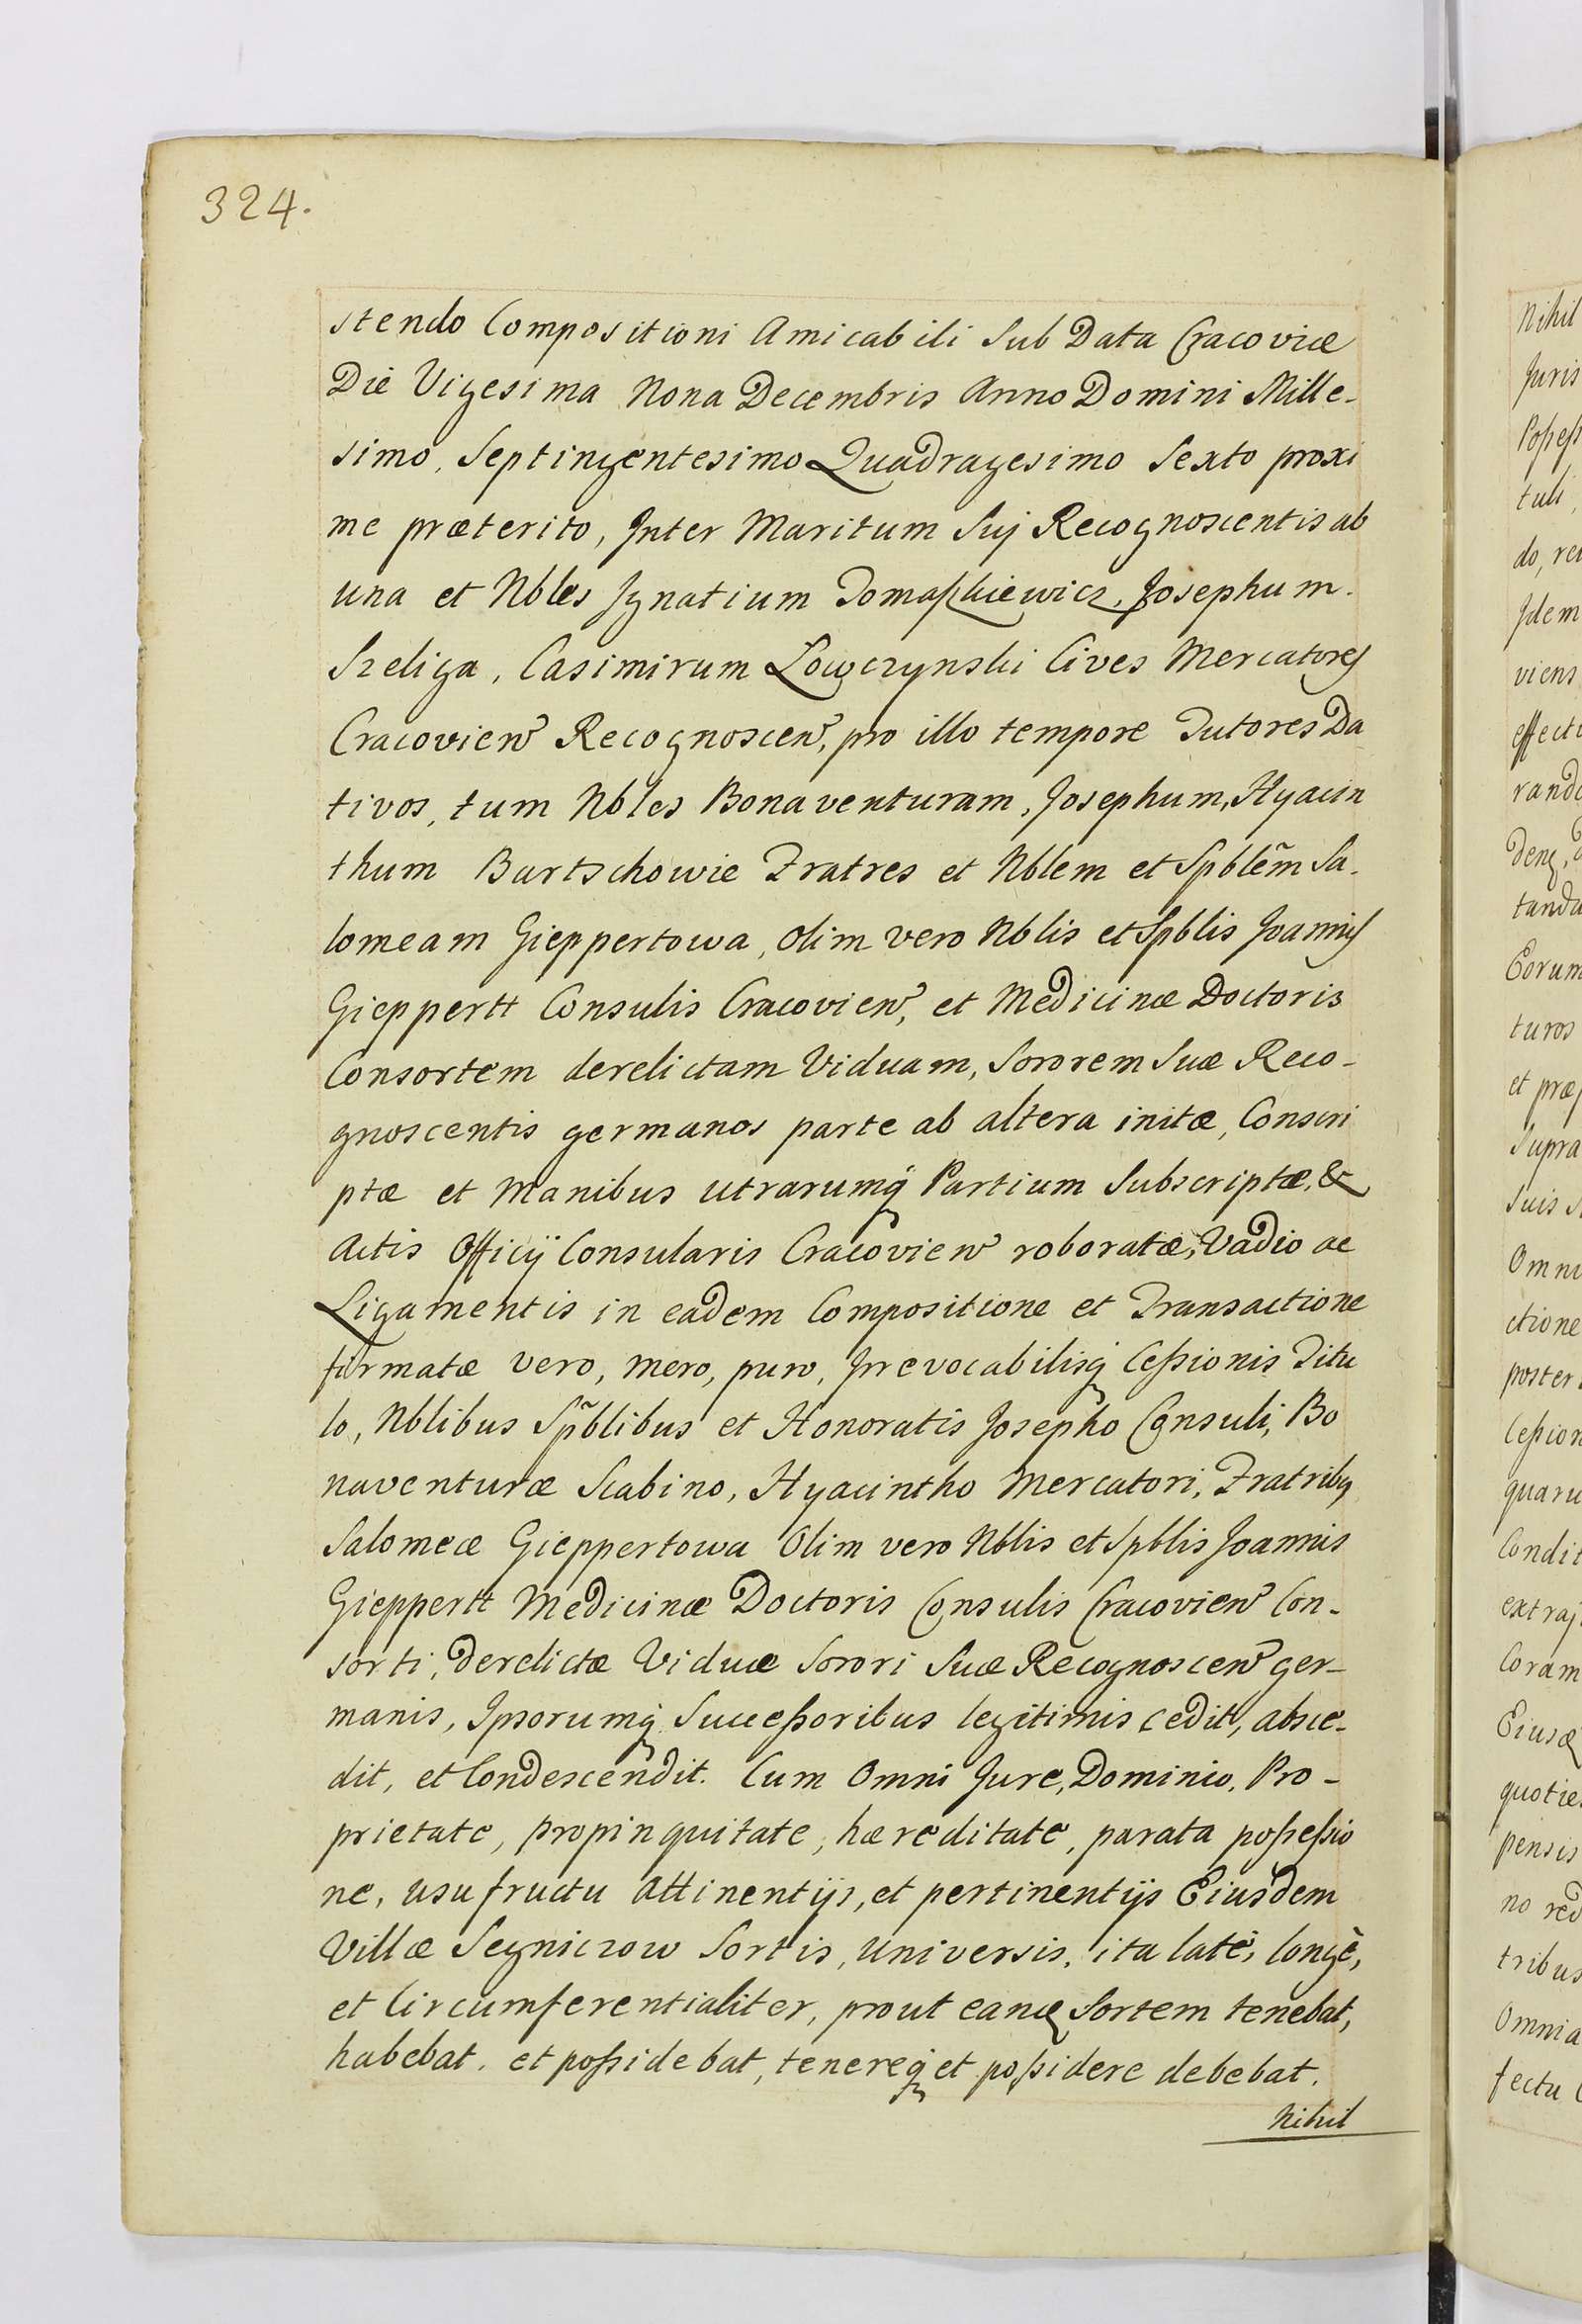 324.
stendo Compositioni Amicabili Sub Data Cracoviæ
Die Vigesima Nona Decembris Anno Domini Mille-
simo, Septingentesimo Quadragesimo Sexto proxi
me præterito, Inter Maritum Suj Recognoscentis ab
una et Nbles Ignatium Tomaszkiewicz, Josephum.
Szeliga, Casimirum Lowczynski Cives Mercatores
Cracovien, Recognoscen, pro illo tempore Tutores Da
tivos, tum Nbles Bonaventuram, Josephum, Hyacin
thum Bartschowie Fratres et Nblem et Spblem̃ Sa-
lomeam Gieppertowa, olim vero Nblis et Spblis Joannis
Gieppertt Consulis Cracovien, et Medicinæ Doctoris
Consortem derelictam Viduam, Sororem Suæ Reco-
gnoscentis germanos parte ab altera initæ, Conscri
ptæ et Manibus utrarumq Partium Subscriptæ, &
Actis Officij Consularis Cracovien roboratæ, Vadio ac
Ligamentis in eadem Compositione et Transactione
firmatæ vero, mero, puro, Irrevocabilisq Cessionis Titu
lo, Nblibus Sp̃blibus et Honoratis Josepho Consuli, Bo
naventuræ Scabino, Hyacintho Mercatori, Fratribq
Salomeæ Gieppertowa Olim vero Nblis et Spblis Joannis
Gieppertt Medicinæ Doctoris Consulis Cracovien Con-
sorti, derelictæ Viduæ Sorori Suæ Recognoscen ger-
manis, Ipsorumq Successoribus legitimis cedit, absce-
dit, et Condescendit. Cum Omni Jure, Dominio, Pro-
prietate, propinquitate, hæreditate, parata possessio
ne, usufructu attinentijs, et pertinentijs Eiusdem
Villæ Segniczow Sortis, universis, ita latè, longè,
et Circumferentialiter, prout eanq Sortem tenebat,
habebat, et possidebat, tenereq et possidere debebat.
Nihil
Nihil
Juris
Possess
tuli,
do, re
Idem
viens
effectu
rando
denq,
tanda
Eorum
turos
et præ
Supra
Suis
Omni
ctione
poster
Cession
quaru
Condit
extraj
Coram
Eiusq
quotie
pensis
no red
tribus
Omnia
fectu